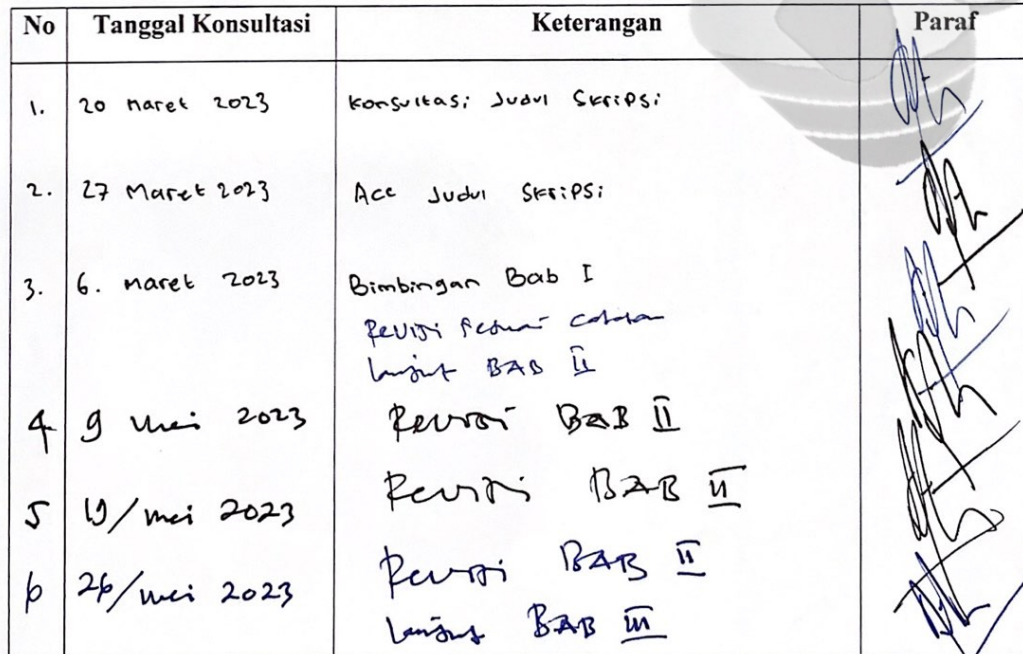 No Tanggal Konsultasi Keterangan Paraf
1. 20 Maret 2023 Konsultasi Judul Skripsi
2. 27 Maret 2023 Acc Judul Skripsi
3. 6. Maret 2023 Bimbingan Bab I
Revisi sesuai catatan
lanjut BAB II
4 9 Mei 2023 Revisi BAB II
5 19/mei 2023 Revisi BAB II
6 26/mei 2023 Revisi BAB II
lanjut BAB III